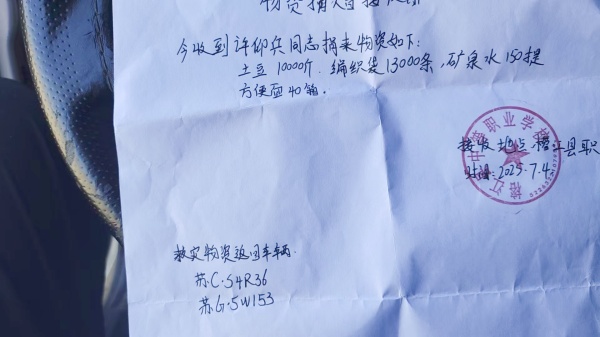 物资捐赠接收
今收到许仰兵同志捐来物资如下:
土豆10000斤、编织袋13000条,矿泉水150提
方便面40箱。
接收地点:榕江县职
时间:2025.7.4.
救灾物资返回车辆
苏C·S4R36
苏G·5W153